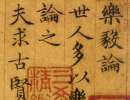 樂毅論
世人多以樂
論之
夫求古賢